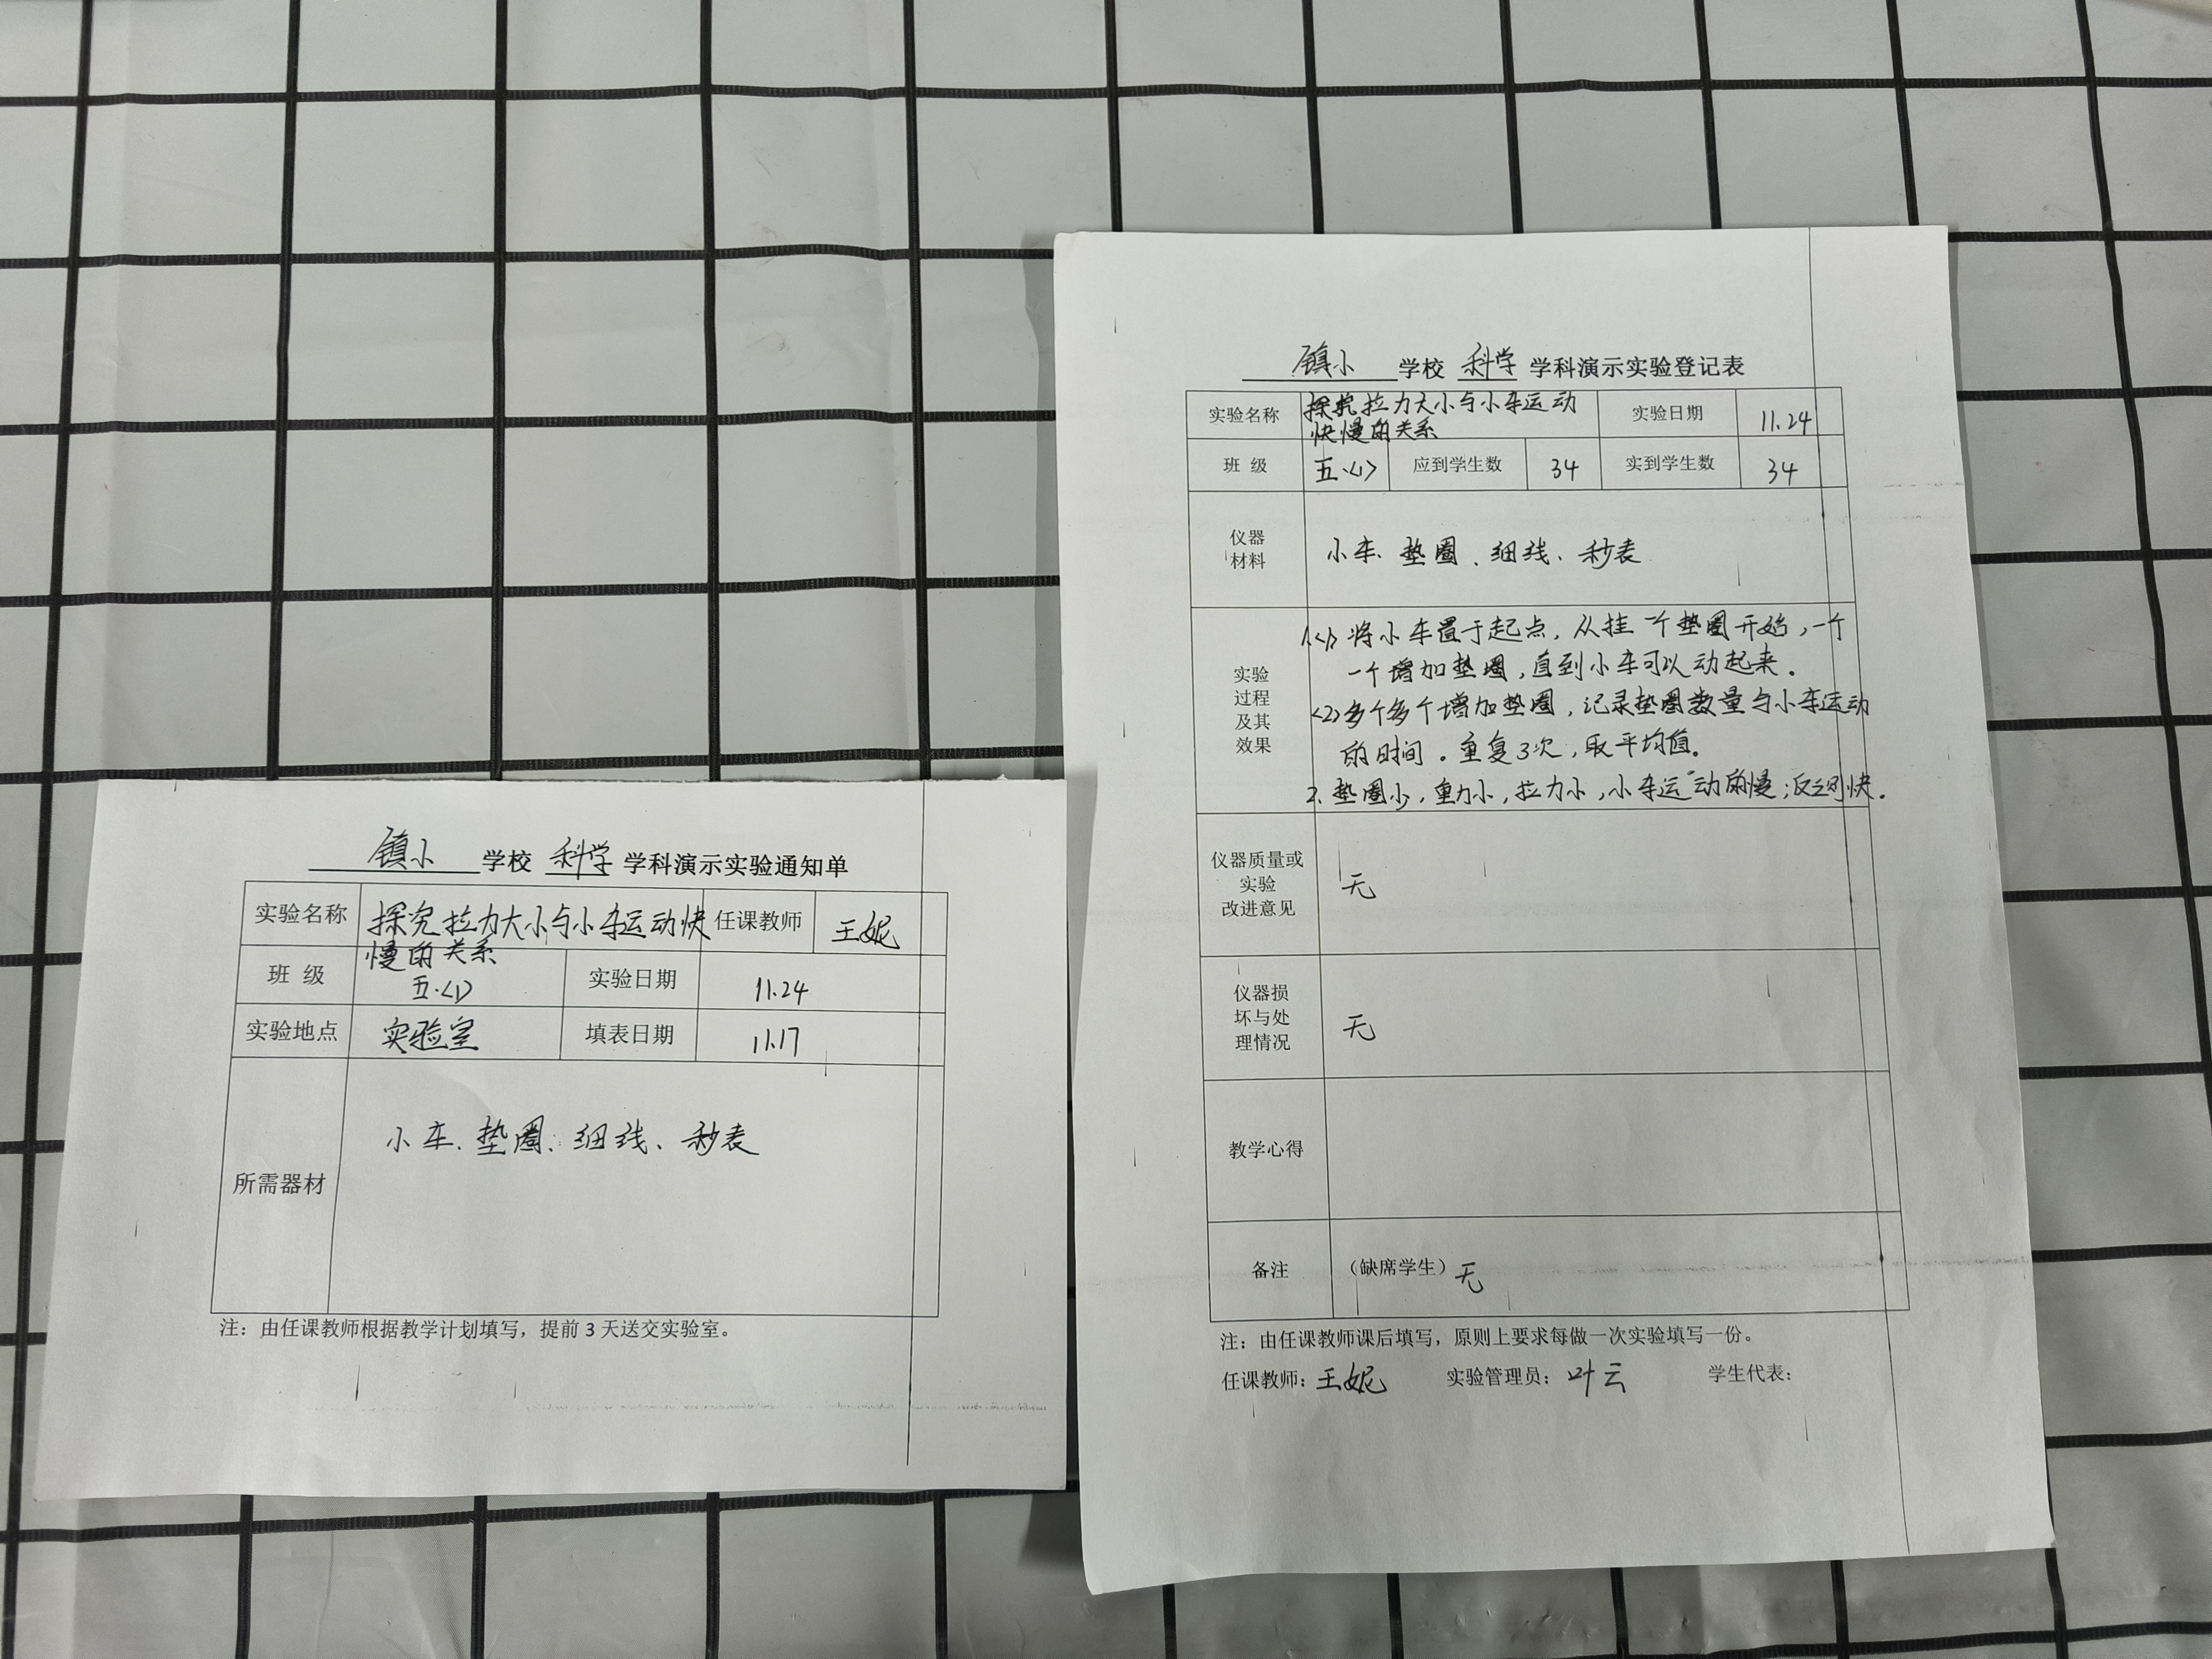 镇小 学校 科学 学科演示实验通知单
实验名称 探究拉力大小与小车运动快 任课教师 王妮
慢的关系
班 级 五.<1> 实验日期 11.24
实验地点 实验室 填表日期 11.17
所需器材 小车、垫圈、细线、秒表
注：由任课教师根据教学计划填写，提前 3 天送交实验室。
镇小 学校 科学 学科演示实验登记表
实验名称 探究拉力大小与小车运动 实验日期 11.24
快慢的关系
班 级 五.<1> 应到学生数 34 实到学生数 34
仪器
材料
小车、垫圈、细线、秒表
实验
过程
及其
效果
1.<1>将小车置于起点，从挂一个垫圈开始，一个
一个增加垫圈，直到小车可以动起来。
<2>多个多个增加垫圈，记录垫圈数量与小车运动
的时间。重复3次，取平均值。
2. 垫圈少，重力小，拉力小，小车运动的慢；反之则快。
仪器质量或
实验
改进意见
无
仪器损
坏与处
理情况
无
教学心得
备注 （缺席学生）无
注：由任课教师课后填写，原则上要求每做一次实验填写一份。
任课教师：王妮 实验管理员：叶云 学生代表：